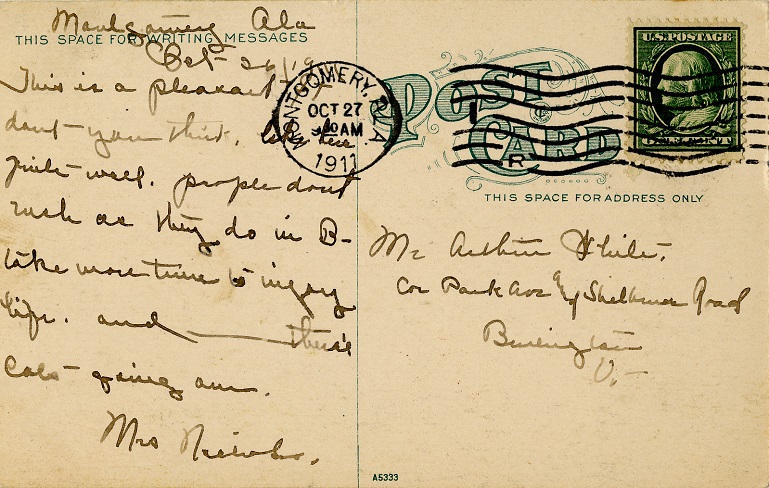 Montgomery Ala
THIS SPACE FOR WRITING MESSAGES
Oct 26/19
This is a pleasant
dont you think, here
quite well. people dont
rush as they do in B-
take more time to injoy
life. and —— there's
lots going on.
Mrs Nichols.
MONTGOMERY, ALA
OCT 27
AM
1911
POST CARD
R
U.S. POSTAGE
THIS SPACE FOR ADDRESS ONLY
Mr Arthur White.
Cor Park Ave & Shelburne Road
Burlington
V.-
A5333